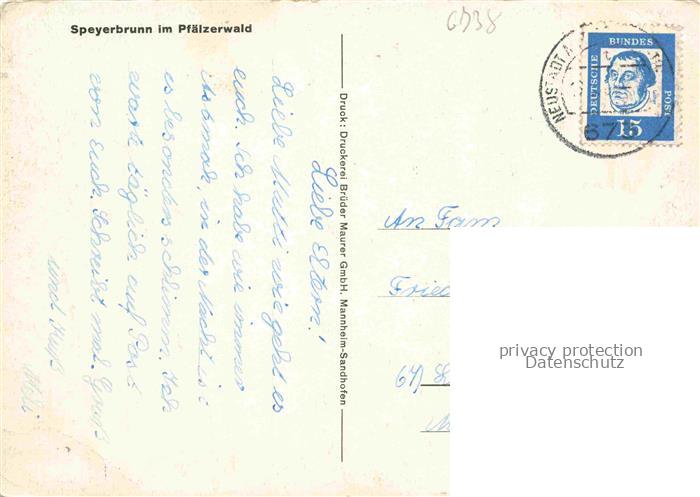 Speyerbrunn im Pfälzerwald
6738
Liebe Eltern!
Liebe Mutti wie geht es
euch. Ich habe wie immer
in der Nacht ist
es besonders schlimm. Ich
warte täglich auf Post
von Euch. Schreibt mal. Gruß
und Kuß
Druck: Druckerei Brüder Maurer GmbH, Mannheim-Sandhofen
NEUSTADT A
67
DEUTSCHE
BUNDES
POST
15
An Fam
Fried
67)
privacy protection
Datenschutz